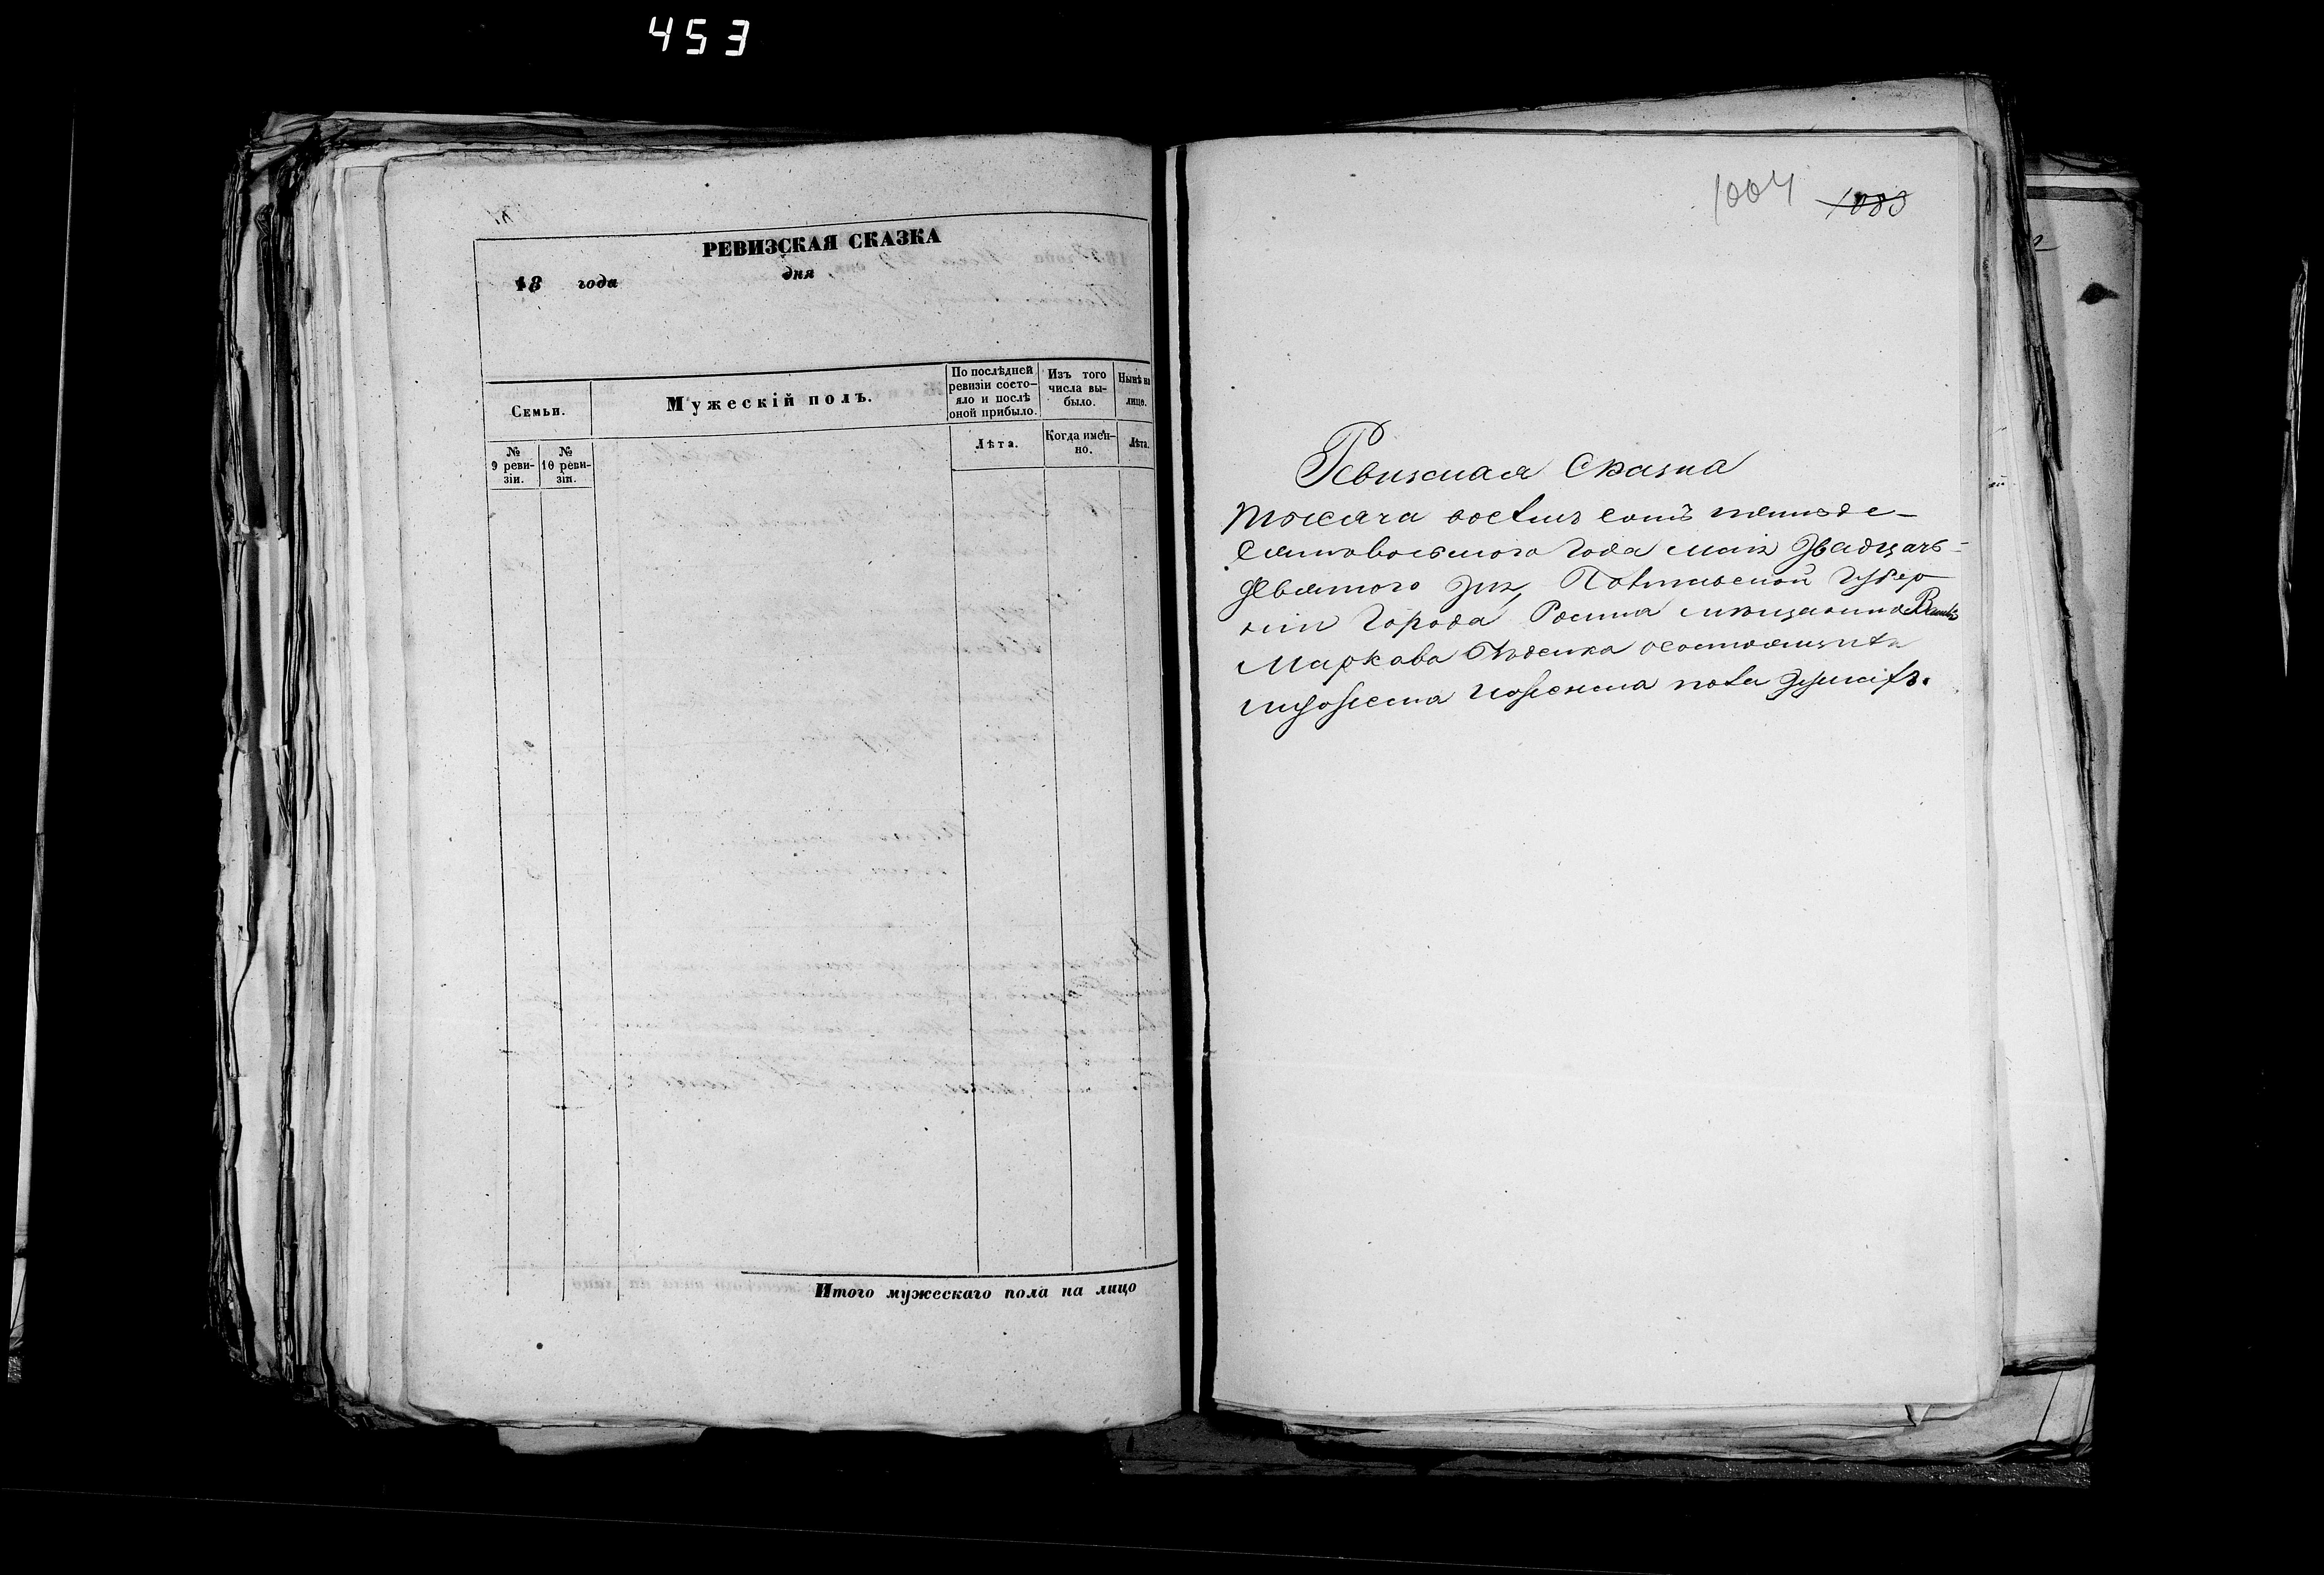 453
РЕВИЗСКАЯ СКАЗКА
18 года дня
Семьи.
Мужескій полъ.
По послѣдней ревизіи состо-
яло и послѣ
оной прибыло.
Изъ того
числа вы-
было.
Нынѣ на
лицо.
№
9 реви-
зіи.
№
10 реви-
зіи.
Лѣта.
Когда имен-
но.
Лѣта.
Итого мужескаго пола на лицо
1004 1083
Ревизская Сказка
Тысяча восемь сотъ пятьде-
сятовосьмого года маія двадцать-
девятого дня, Полтавской Губер
ніи Города Ромна мѣщанина
Маркова осостоящихъ
мужеска иженска пола душахъ.